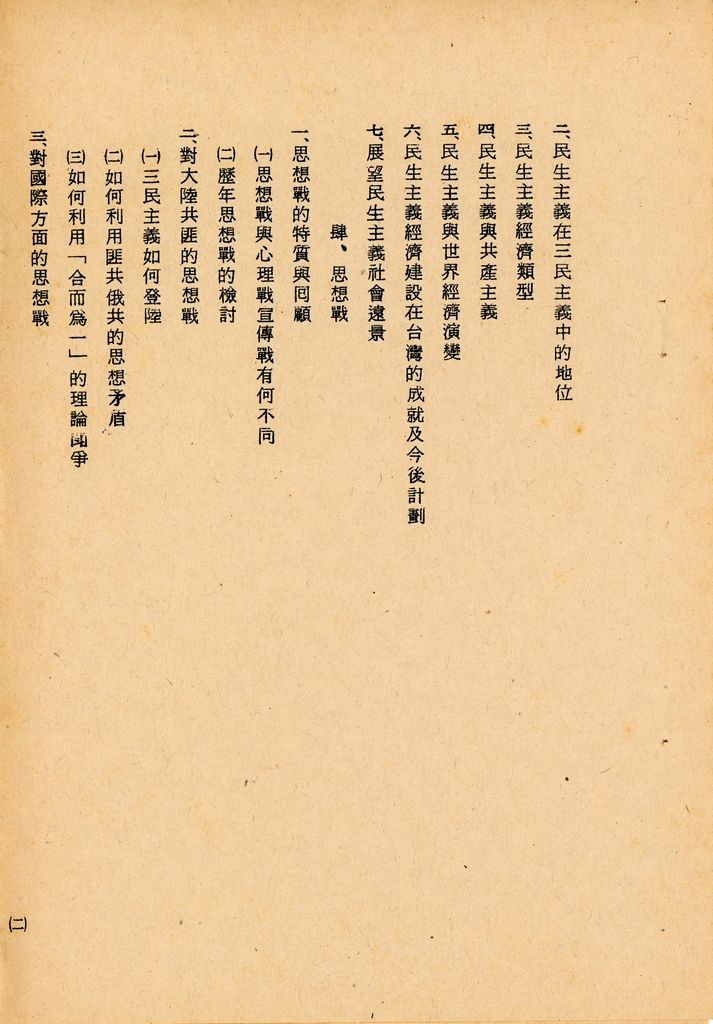 二、民生主義在三民主義中的地位
三、民生主義經濟類型
四、民生主義與共產主義
五、民生主義與世界經濟演變
六、民生主義經濟建設在台灣的成就及今後計劃
七、展望民生主義社會遠景
肆、思想戰
一、思想戰的特質與回顧
㈠思想戰與心理戰宣傳戰有何不同
㈡歷年思想戰的檢討
二、對大陸共匪的思想戰
㈠三民主義如何登陸
㈡如何利用匪共俄共的思想矛盾
㈢如何利用「合而爲一」的理論鬪爭
三、對國際方面的思想戰
㈡